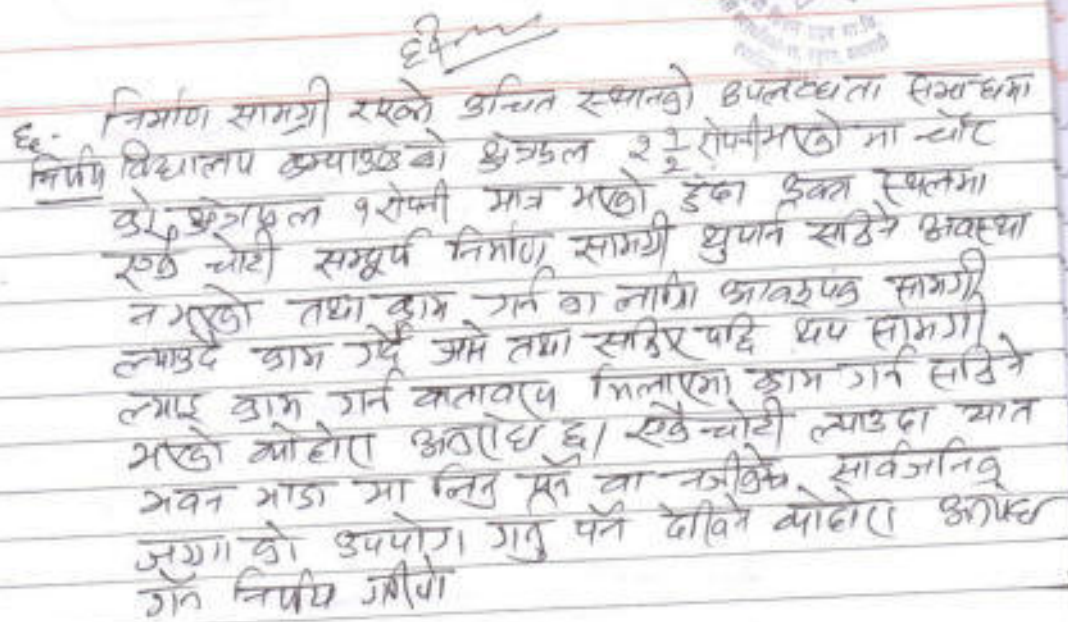 निर्माण सामग्री राख्ने उचित स्थानको उपलब्धता सम्बन्धमा
६. निर्णय विद्यालय कम्पाउण्डको क्षेत्रफल २ १/२ रोपनी भएको मा चौर
को क्षेत्रफल १ रोपनी मात्र भएको हुँदा उक्त स्थलमा
एकै चोटी सम्पूर्ण निर्माण सामग्री थुपार्न सकिने अवस्था
न भएको तथा काम गर्न का लागि आवश्यक सामग्री
ल्याउदै काम गर्दै जाने तथा सकिए पछि थप सामग्री
ल्याइ काम गर्न वातावरण मिलाएमा काम गर्न सकिने
भएको व्योहोरा अनुरोध छ। एकैचोटी ल्याउदा भने
भवन भाडा मा लिनु पर्ने वा नजीकको सार्वजनिक
जग्गा को उपयोग गर्नु पर्ने देखिने व्योहोरा अनुरोध
गर्ने निर्णय गरियो